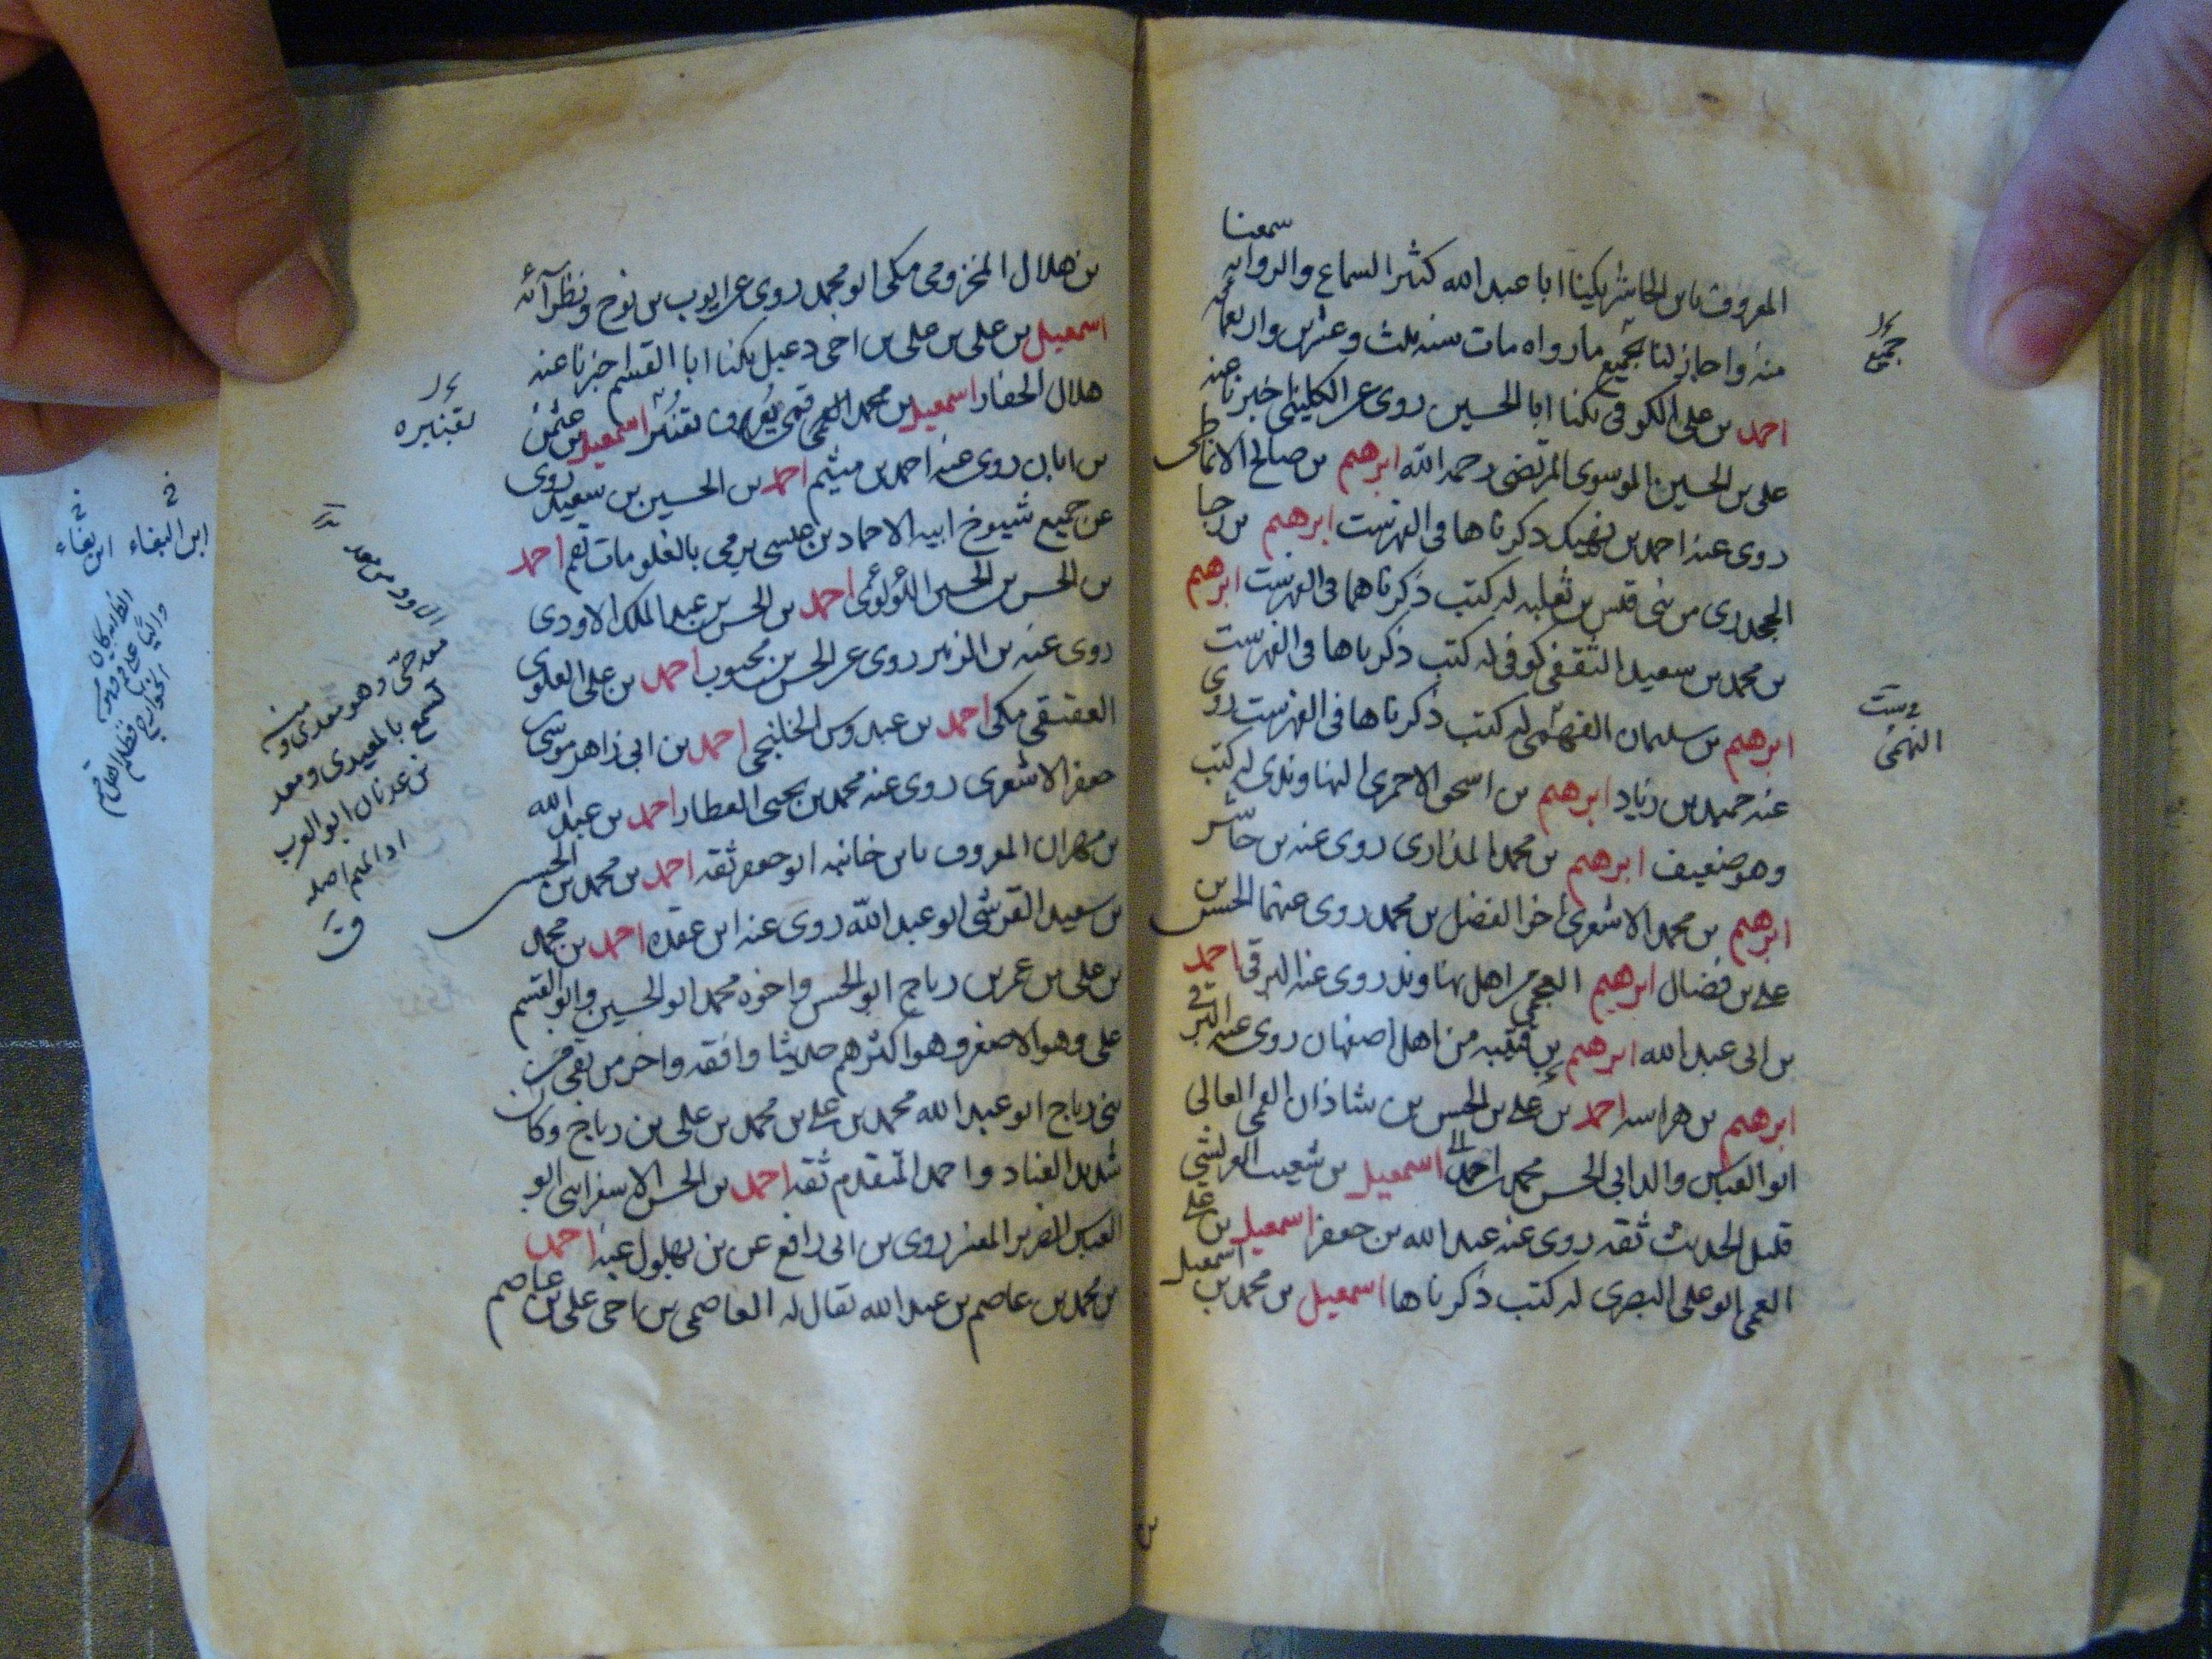 المعروف بابن الحاشر يكنا ابا عبد الله كثير السماع والرواية سمعنا
منه واجاز لنا بجميع ما رواه مات سنه ثلث وعشرين واربعمائه
احمد بن علي الكوفي يكنا ابا الحسين روى عن الكليني اخبرنا عنه
علي بن الحسين الموسوي المرتضى رحمه الله ابرهيم بن صالح الانماطي
روى عنه احمد بن نهيك ذكرناها في الفهرست ابرهيم بن رجا
الجحدري من بني قيس بن ثعلبه له كتب ذكرناهما في الفهرست ابرهيم
بن محمد بن سعيد الثقفي كوفي له كتب ذكرناها في الفهرست
ابرهيم بن سليمان الفهمي له كتب ذكرناها في الفهرست روى
عنه حميد بن زياد ابرهيم بن اسحق الاحمري النهاوندي له كتب
وهو ضعيف ابرهيم بن محمد المذاري روى عنه بن حاشر
ابرهيم بن محمد الاشعري اخو الفضل بن محمد روى عنهما الحسن بن
علي بن فضال ابرهيم العجمي من اهل نهاوند روى عنه البرقي احمد
بن ابي عبد الله ابرهيم بن قتيبه من اهل اصفهان روى عنه البرقي
ابرهيم بن هراسه احمد بن علي بن الحسن بن شاذان القمي العالي
ابو العباس والد ابي الحسن محمد بن احمد اسمعيل بن شعيب العريشي
قليل الحديث ثقه روى عنه عبد الله بن جعفر اسمعيل بن علي
العمي ابو علي البصري له كتب ذكرناها اسمعيل بن محمد بن اسمعيل
جميع
النهمي
بن هلال المخزومي مكي ابو محمد روى عن ايوب بن نوح ونظرائه
اسمعيل بن علي بن علي بن اخي دعبل يكنا ابا القسم اخبرنا عنه
هلال الحفار اسمعيل بن محمد القمي قمي يعرف بقنبره اسمعيل بن عثمن
بن ابان روى عنه احمد بن ميثم احمد بن الحسين بن سعيد روى
عن جميع شيوخ ابيه الا حماد بن عيسى يرمى بالغلو مات بقم احمد
بن الحسن بن الحسين اللؤلؤي احمد بن الحسن بن عبد الملك الاودي
روى عنه بن الزبير روى عن الحسن بن محبوب احمد بن علي العلوي
العقيقي مكي احمد بن عبدوس الخلنجي احمد بن ابي زاهر موسى
جعفر الاشعري روى عنه محمد بن يحيى العطار احمد بن عبد الله
بن مهران المعروف بابن خانبه ابو جعفر ثقه احمد بن محمد بن الحسن
بن سعيد القرشي ابو عبد الله روى عنه ابن عقده احمد بن محمد
بن علي بن عمر بن رباح ابو الحسن واخوه محمد ابو الحسين وابو القسم
علي وهو الاصغر وهو اكثرهم حديثا وافقه واخر من بقي من
بني رباح ابو عبد الله محمد بن علي بن محمد بن علي بن رباح وكان
شديد العناد واحمد المتقدم ثقه احمد بن الحسن الاسفرايني ابو
العباس الضرير المفسر روى بن ابي رافع عن بن بهلول عنه احمد
بن محمد بن عاصم بن عبد الله يقال له العاصمي بن اخي علي بن عاصم
بقنبره
الاود من معد
معد حي وهو معدي ومنه
تسمع بالمعيدي ومعد
بن عدنان ابو العرب
ابن البغاء ابن بغاء